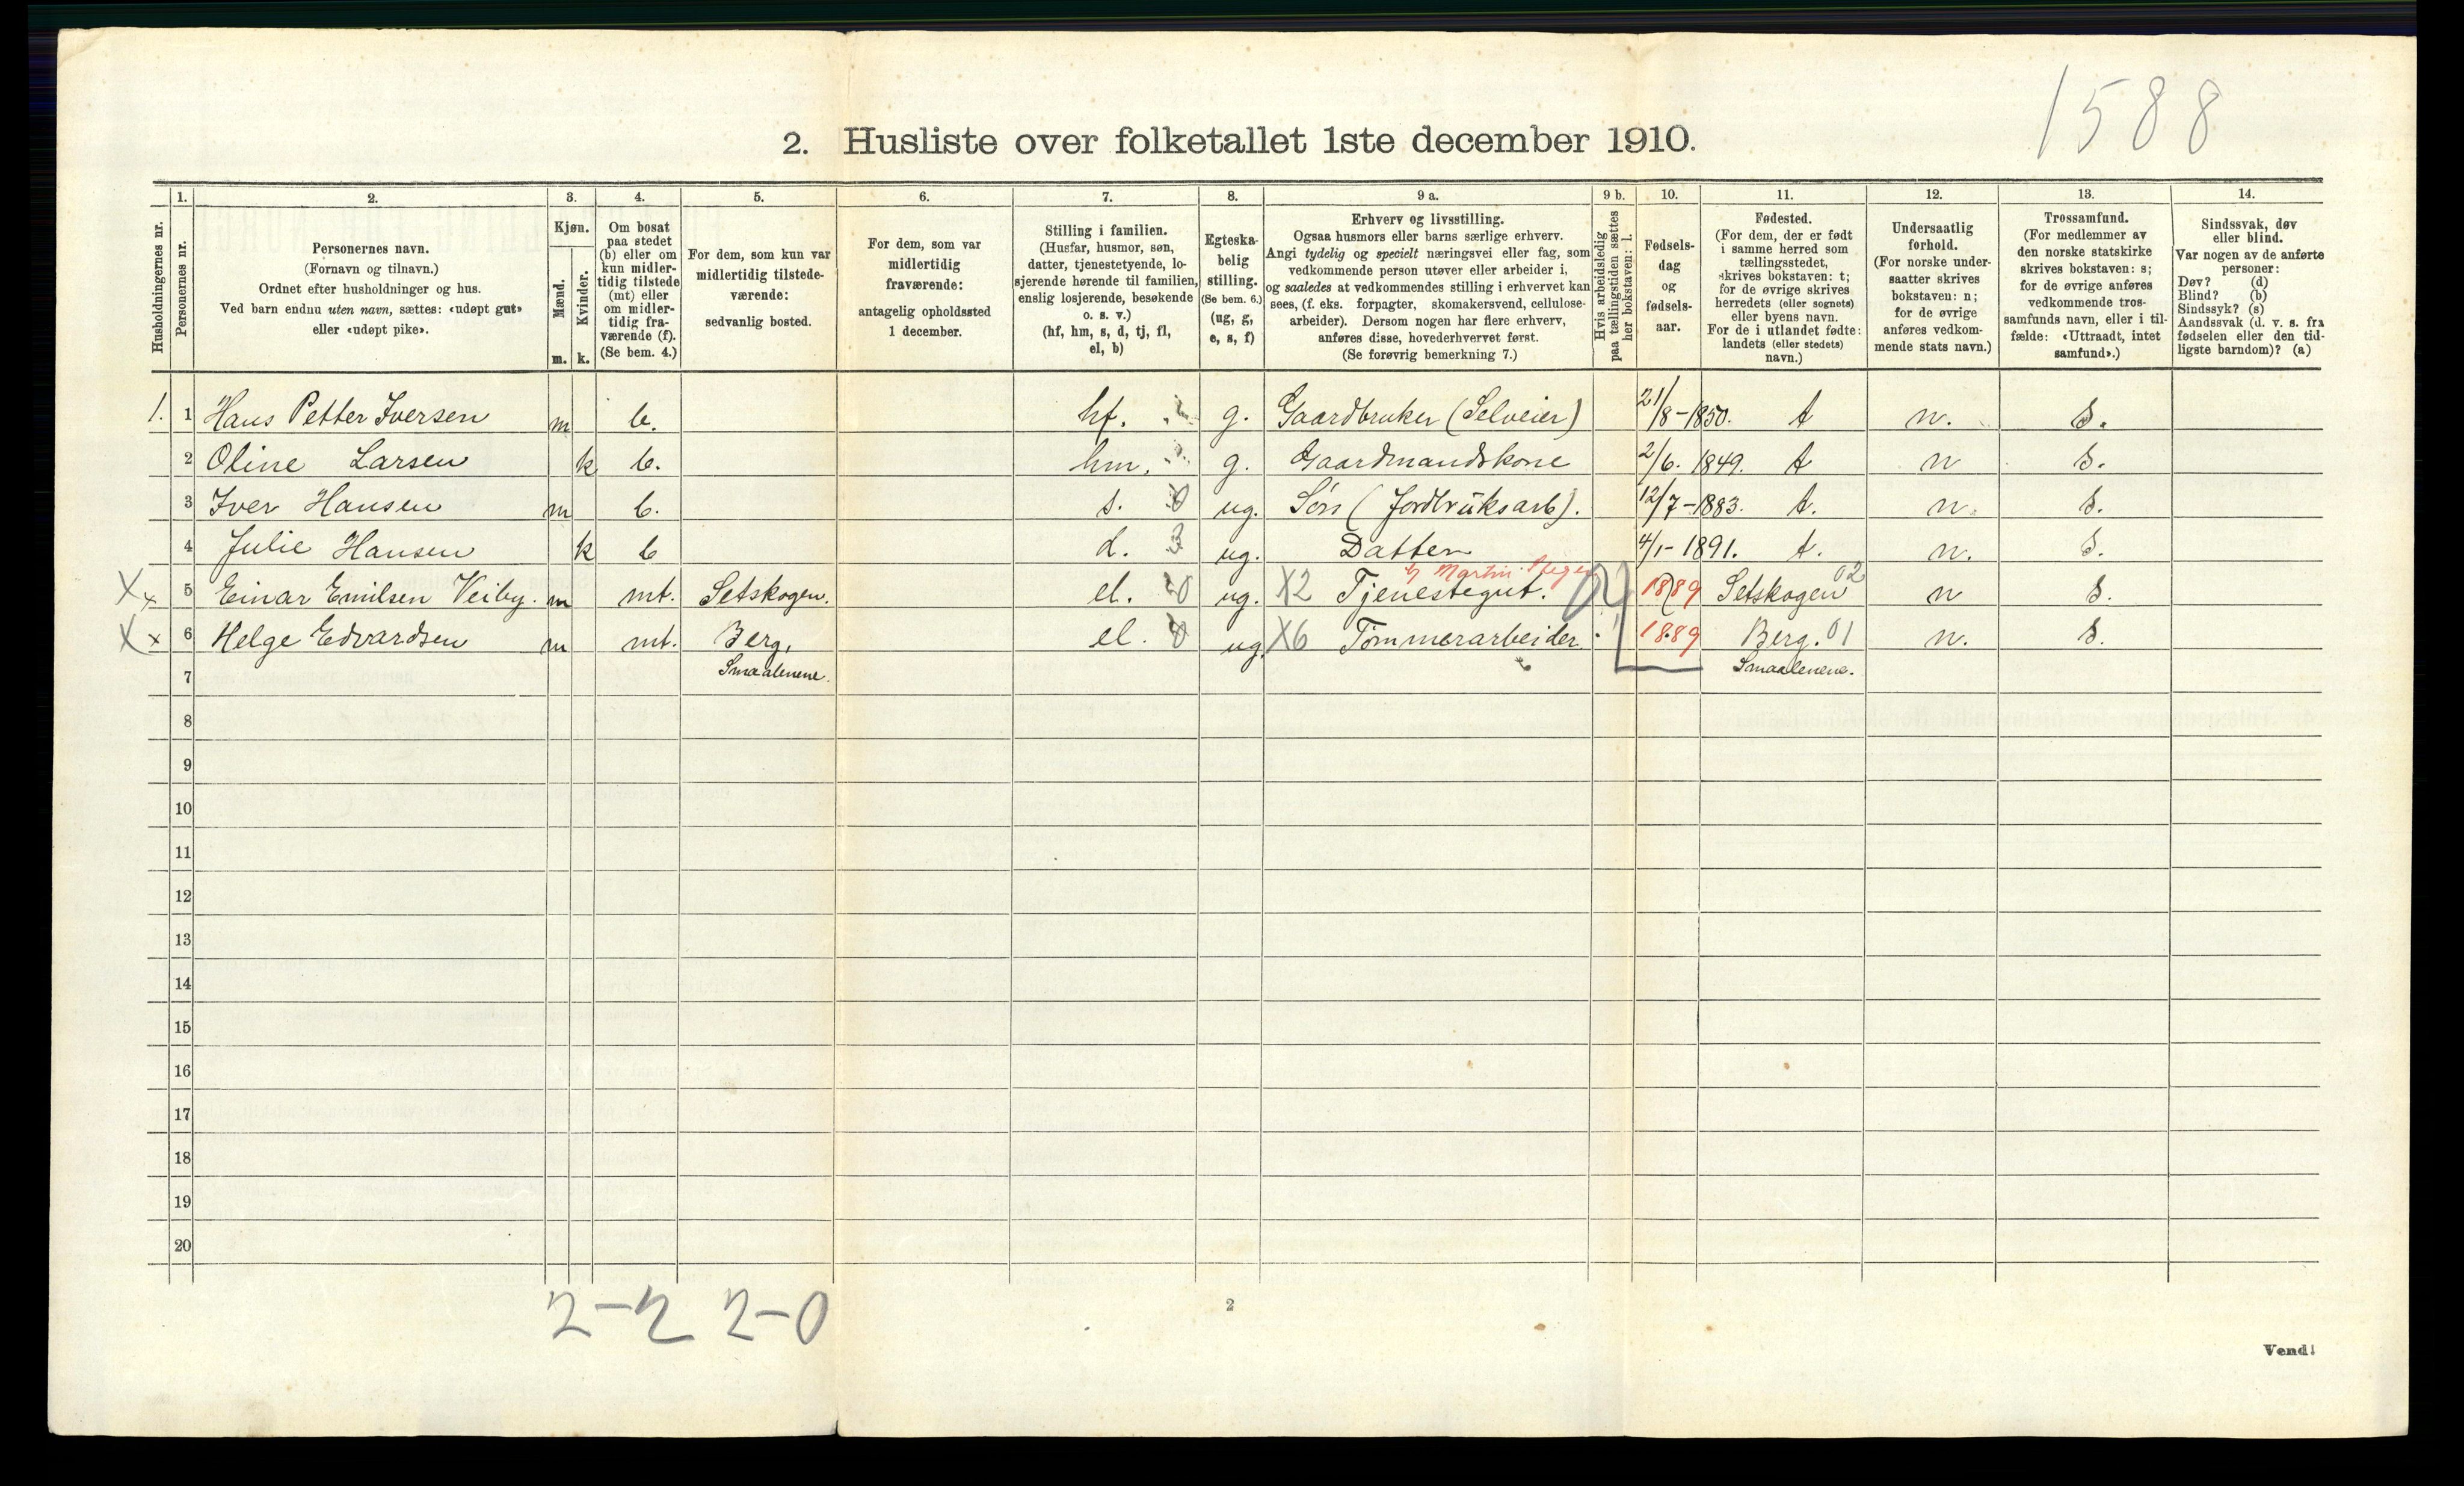 1588
2. Husliste over folketallet 1ste december 1910.
Husholdningernes nr.
1.
Personernes nr.
2.
Personernes navn.
(Fornavn og tilnavn.)
Ordnet efter husholdninger og hus.
Ved barn endnu uten navn, sættes: «udøpt gut»
eller «udøpt pike».
3.
Kjøn.
Mænd.
Kvinder.
m. k.
4.
Om bosat
paa stedet
(b) eller om
kun midler-
tidig tilstede
(mt) eller
om midler-
tidig fra-
værende (f).
(Se bem. 4.)
5.
For dem, som kun var
midlertidig tilstede-
værende:
sedvanlig bosted.
6.
For dem, som var
midlertidig
fraværende:
antagelig opholdssted
1 december.
7.
Stilling i familien.
(Husfar, husmor, søn,
datter, tjenestetyende, lo-
sjerende hørende til familien,
enslig losjerende, besøkende
o. s. v.)
(hf, hm, s, d, tj, fl,
el, b)
8.
Egteska-
belig
stilling.
(Se bem. 6.)
(ug, g,
e, s, f)
9 a.
Erhverv og livsstilling.
Ogsaa husmors eller barns særlige erhverv.
Angi tydelig og specielt næringsvei eller fag, som
vedkommende person utøver eller arbeider i,
og saaledes at vedkommendes stilling i erhvervet kan
sees, (f. eks. forpagter, skomakersvend, cellulose-
arbeider). Dersom nogen har flere erhverv,
anføres disse, hovederhvervet først.
(Se forøvrig bemerkning 7.)
9 b.
Hvis arbeidsledig
paa tællingstiden sættes
her bokstaven: l.
10.
Fødsels-
dag
og
fødsels-
aar.
11.
Fødested.
(For dem, der er født
i samme herred som
tællingsstedet,
skrives bokstaven: t;
for de øvrige skrives
herredets (eller sognets)
eller byens navn.
For de i utlandet fødte:
landets (eller stedets)
navn.)
12.
Undersaatlig
forhold.
(For norske under-
saatter skrives
bokstaven: n;
for de øvrige
anføres vedkom-
mende stats navn.)
13.
Trossamfund.
(For medlemmer av
den norske statskirke
skrives bokstaven: s;
for de øvrige anføres
vedkommende tros-
samfunds navn, eller i til-
fælde: «Uttraadt, intet
samfund».)
14.
Sindssvak, døv
eller blind.
Var nogen av de anførte
personer:
Døv? (d)
Blind? (b)
Sindssyk? (s)
Aandssvak (d. v. s. fra
fødselen eller den tid-
ligste barndom)? (a)
1. 1 Hans Petter Iversen m b. hf. g. Gaardbruker (Selveier) 21/8-1850. t n. s.
2 Oline Larsen k b. hm. g. Gaardmandskone 2/6. 1849. t n s.
3 Iver Hansen m b. s. ug. Søn (Jordbruksarb). 12/7-1883. t. n. s.
4 Julie Hansen k b d. ug. Datter 4/1-1891. t. n. s.
X x 5 Einar Emilsen Veiby. m mt. Setskogen. el. ug. X2 Tjenestegut. 1889 Setskogen 02 n s.
X x 6 Helge Edvardsen m mt. Berg, el. ug. X6 Tømmerarbeider. 1889 Berg. 01 n. s.
7 Smaalenene. Smaalenene.
8
9
10
11
12
13
14
15
16
17
18
19
20
2-2 2-0
2
Vend!